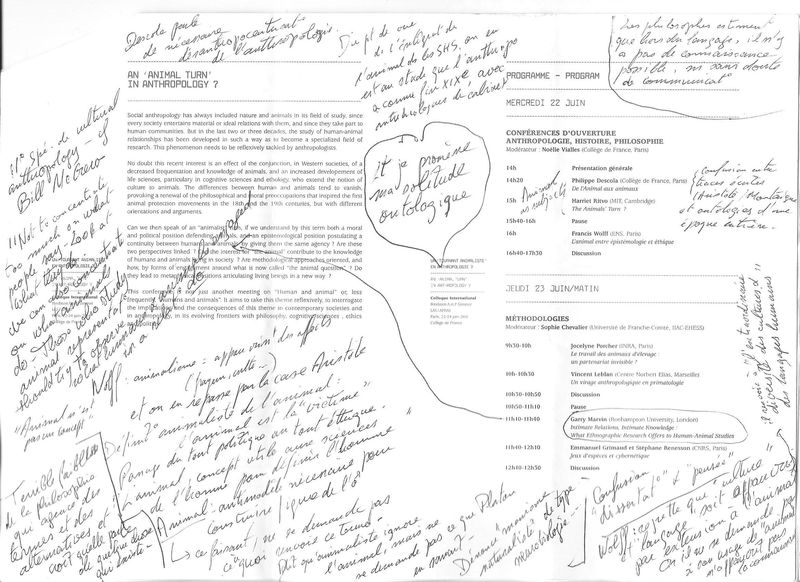 Descola parle
de nécessaire
désanthropocentrisat°
de l'anthropologie.
Du pt de vue
de l'intégrat° de
l'animal ds les SHS, on en
est au stade que l'anthropo
a connu fin XIXe avec
anthropologues de cabinet
Les philosophes estiment
que hors du langage, il n'y
a pas de connaissance
possible, ni sans doute
de communicat°
AN 'ANIMAL TURN'
IN ANTHROPOLOGY ?
Social anthropology has always included nature and animals in its field of study, since
every society entertains material or ideal relations with them, and since they take part to
human communities. But in the last two or three decades, the study of human-animal
relationships has been developed in such a way as to become a specialized field of
research. This phenomenon needs to be reflectively tackled by anthropologists.
No doubt this recent interest is an effect of the conjunction, in Western societies, of a
decreased frequentation and knowledge of animals, and an increased developement of life
sciences, particulary in cognitive sciences and ethology, who extend the notion of
culture to animals. The differences between human and animals tend to vanish,
provoking a renewal of the philosophical and moral preoccupations that inspired the first
animal protection movements in the 18th and the 19th centuries, but with different
orientations and arguments.
Can we then speak of an "animalist", if we understand by this term both a moral
and political position defending animals, and an epistemological position postulating a
continuity between human and animals by giving them the same agency ? Are these
two perspectives linked ? the interest for "the animal" contribute to the knowledge
of humans and animals living in society ? Are methodological approaches oriented, and
how, by forms of around what is now called "the animal question" ? Do
they lead to articulating living beings in a new way ?
This is not just another meeting on "Human and animal" or, less
frequently, and animals". It aims to take this theme reflexively, to interrogate
the implications and the consequences of this theme in contemporary societies and
in anthropology, in its evolving frontiers with philosophy, cognitive sciences, ethics
it je promène
ma solitude
ontologique
"1er spé. de cultural
anthropology - if
Bill McGrew
"Not to concentrate
too much on what
people say. Look at
what they do
We can also concentrate
on what animals
do. Those who study
animal representat°
should try to observe
"Animal n'est
pas un concept"
UN 'TOURNANT ANIMALISTE'
EN ANTHROPOLOGIE ?
AN 'ANIMAL TURN'
IN ANTHROPOLOGY ?
Colloque International
Collège de France
PROGRAMME - PROGRAM
MERCREDI 22 JUIN
CONFÉRENCES D'OUVERTURE
ANTHROPOLOGIE, HISTOIRE, PHILOSOPHIE
Modérateur : Noëlie Vialles (Collège de France, Paris)
14h Présentation générale
14h20 Philippe Descola (Collège de France, Paris)
De L'Animal aux animaux
15h Harriet Ritvo (MIT, Cambridge)
The Animals' Turn ?
15h40-16h Pause
16h Francis Wolff (ENS, Paris)
L'animal entre épistémologie et éthique
16h40-17h30 Discussion
Animal
as subject
confusion entre
traces écrites
(Aristote, Montaigne)
et ontologies d'une
époque entière.
JEUDI 23 JUIN/MATIN
MÉTHODOLOGIES
Modérateur : Sophie Chevalier (Université de Franche-Comté, IIAC-EHESS)
9h30-10h Jocelyne Porcher (INRA, Paris)
Le travail des animaux d'élevage :
un partenariat invisible ?
10h-10h30 Vincent Leblan (Centre Norbert Elias, Marseille)
Un virage anthropologique en primatologie
10h30-10h50 Discussion
10h50-11h10 Pause
11h10-11h40 Garry Marvin (Roehampton University, London)
Intimate Relations, Intimate Knowledge :
What Ethnographic Research Offers to Human-Animal Studies
11h40-12h10 Emmanuel Grimaud et Stéphane Renesson (CNRS, Paris)
Jeux d'espèces et cybernétique
12h10-12h30 Discussion
Il renvoie à l'extraordinaire
diversité des cultures &
des langages humains
Wolff : animalisme = appeu versus les affects
et on en repasse par la case Aristote
Définit° animaliste de l'animal :
l'animal est la "victime"
Passage du tout politique au tout éthique.
L'animal concept utile aux sciences
de l'homme pour définir l'homme
Animal : anthromodèle nécessaire pour
construire l'épure de l'ô
ce faisant, ne se demande pas
ce quoi envoie ce tournat
Dit qu'animaliste ignore
l'animal, mais ne
se demande pas ce que Platon
en savait.
Terrible faiblesse
de la philosophie
qui agence des
termes et des
alternatives et
croit qu'elle parle
de quelque chose
qui existe
Dénonce "monisme
naturaliste" de type
neurobiologie
Confusion
"dissertat°" & "pensée"
Wolff : regrette que "culture"
et langage, soit appauvri
par extension à l'animal
On il se demande pas
si son usage de "animal"